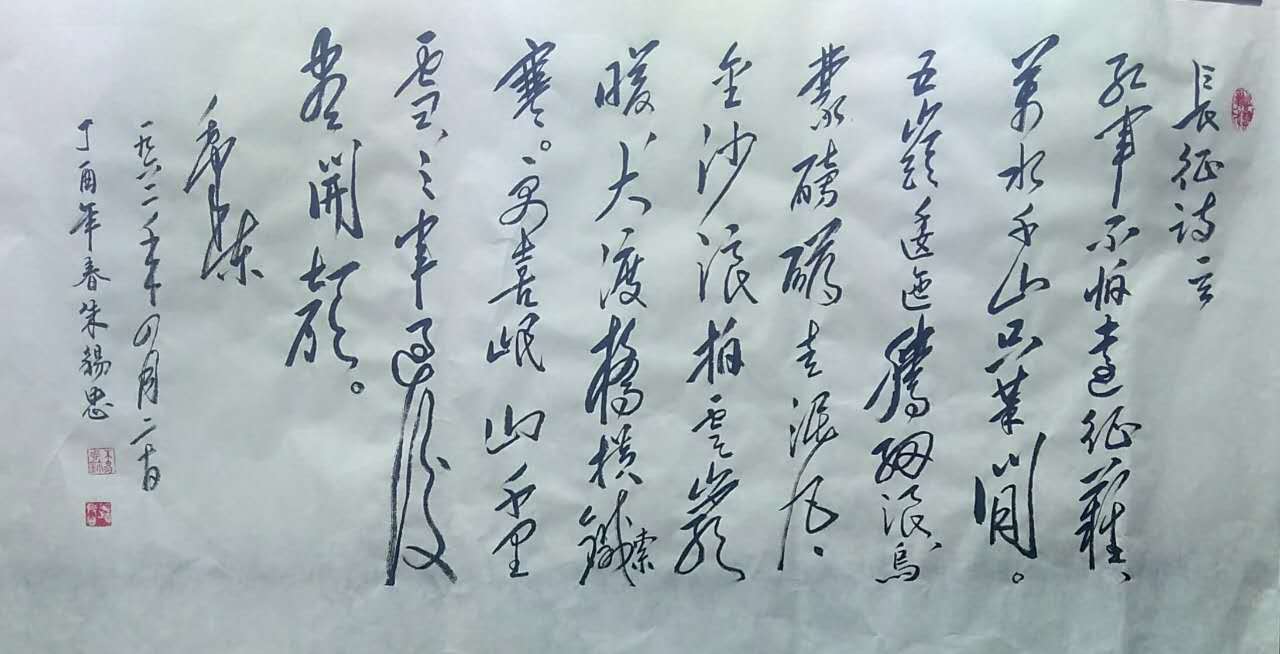 長征詩一首
紅軍不怕遠征難、
萬水千山只等閒。
五嶺逶迤騰細浪烏
蒙磅礴走泥丸、
金沙浪拍雲崖
暖、大渡橋橫鐵索
寒。更喜岷山千里
雪、三軍過後
盡開顏。
毛澤東
一九六二年四月二十日
丁酉年春朱錫忠